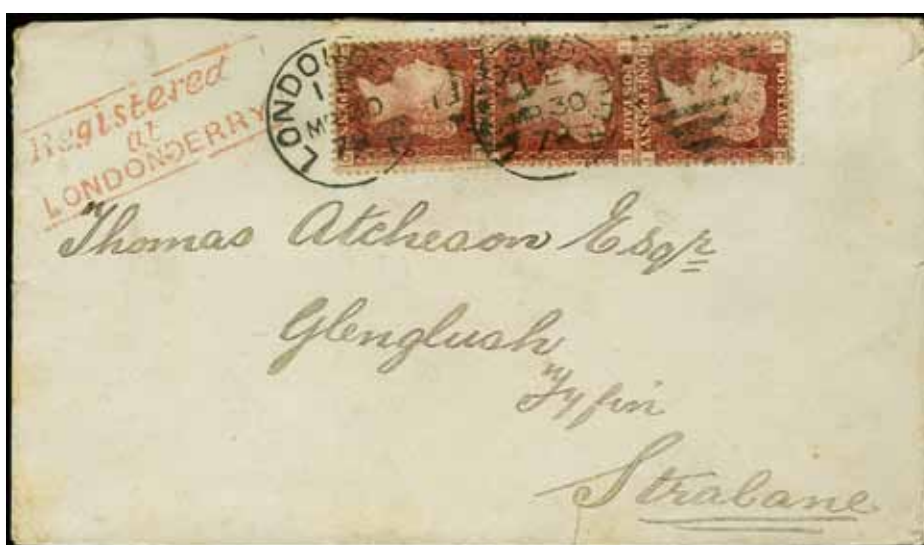 Registered
at
LONDONDERRY
LONDON
MR 30
POSTAGE
ONE PENNY
POSTAGE
Thomas Atcheson Esqr
Glenglush
Fyfin
Strabane